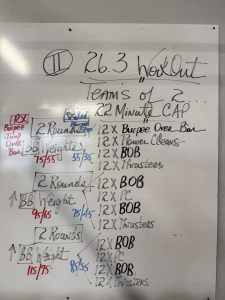 II 26.3 Workout
Teams of 2
22 Minute CAP
RX
Burpee Jump Over Bar
Scaled Burpee
2 Rounds
BB Weights
75/55 55/35
12 X Burpee Over Bar
12 X Power Cleans
12 X BOB
12 X Thrusters
2 Rounds
↑ BB Weight
95/65 75/45
12 X BOB
12 X PC
12 X BOB
12 X Thrusters
2 Rounds
↑ BB Weight
115/75 85/55
12 X BOB
12 X PC
12 X BOB
12 X Thrusters